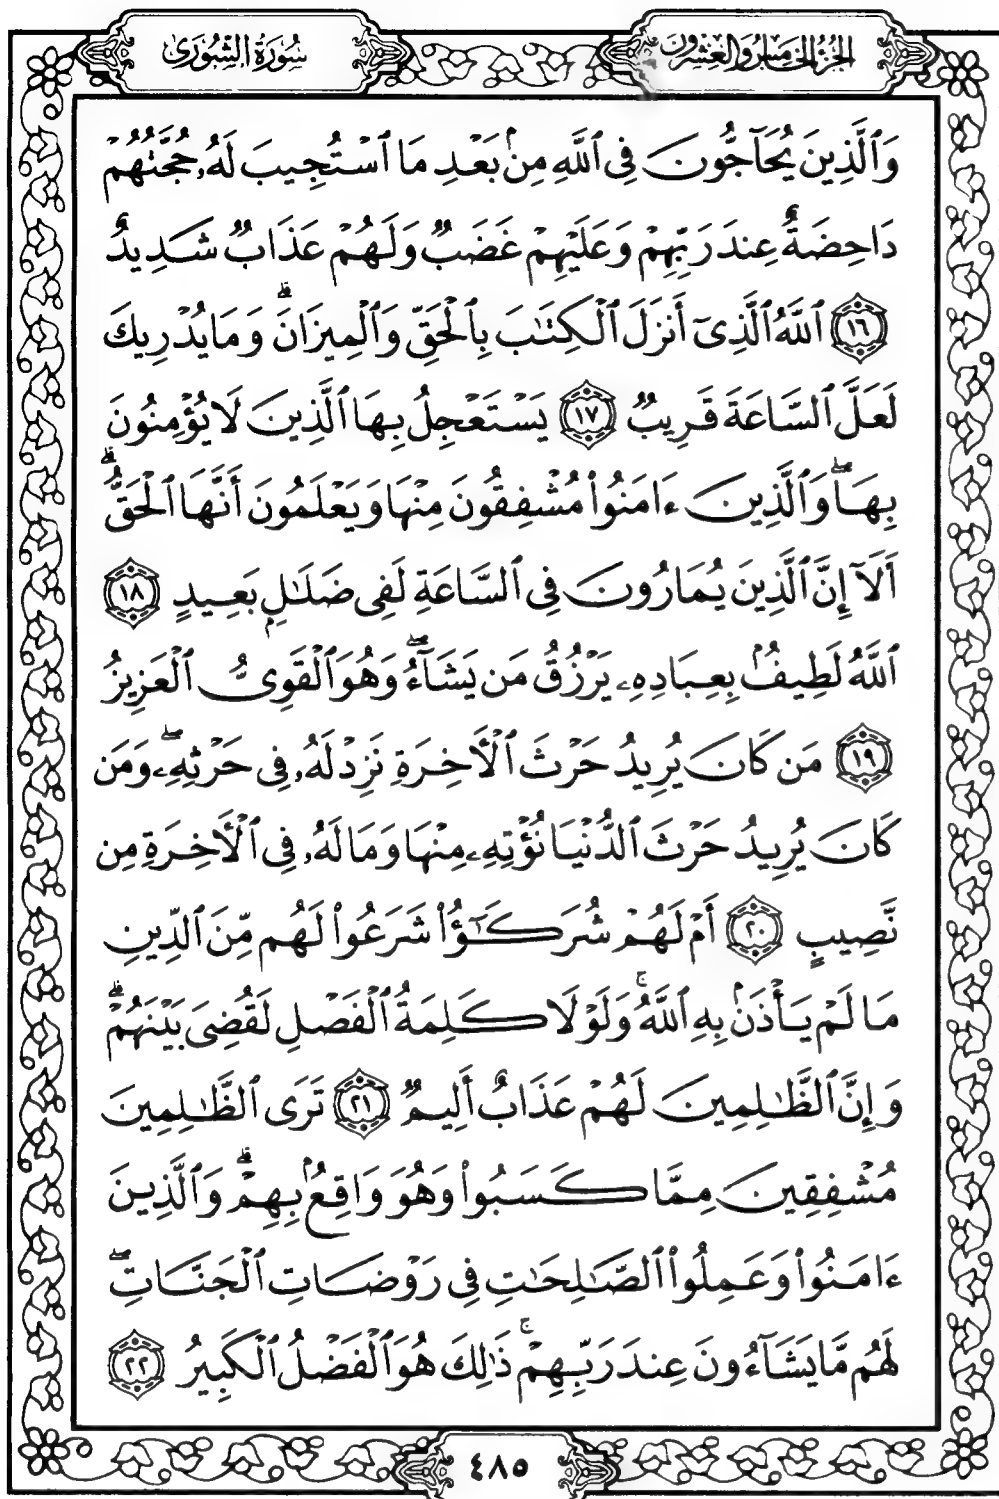 الجزء الخامس والعشرون
سورة الشورى
وَٱلَّذِينَ يُحَآجُّونَ فِى ٱللَّهِ مِنۢ بَعْدِ مَا ٱسْتُجِيبَ لَهُۥ حُجَّتُهُمْ
دَاحِضَةٌ عِندَ رَبِّهِمْ وَعَلَيْهِمْ غَضَبٌ وَلَهُمْ عَذَابٌ شَدِيدٌ
١٦ ٱللَّهُ ٱلَّذِىٓ أَنزَلَ ٱلْكِتَٰبَ بِٱلْحَقِّ وَٱلْمِيزَانَ ۗ وَمَا يُدْرِيكَ
لَعَلَّ ٱلسَّاعَةَ قَرِيبٌ ١٧ يَسْتَعْجِلُ بِهَا ٱلَّذِينَ لَا يُؤْمِنُونَ
بِهَا ۖ وَٱلَّذِينَ ءَامَنُوا۟ مُشْفِقُونَ مِنْهَا وَيَعْلَمُونَ أَنَّهَا ٱلْحَقُّ ۗ
أَلَآ إِنَّ ٱلَّذِينَ يُمَارُونَ فِى ٱلسَّاعَةِ لَفِى ضَلَٰلٍۭ بَعِيدٍ ١٨
ٱللَّهُ لَطِيفٌۢ بِعِبَادِهِۦ يَرْزُقُ مَن يَشَآءُ ۖ وَهُوَ ٱلْقَوِىُّ ٱلْعَزِيزُ
١٩ مَن كَانَ يُرِيدُ حَرْثَ ٱلْأَخِرَةِ نَزِدْ لَهُۥ فِى حَرْثِهِۦ ۖ وَمَن
كَانَ يُرِيدُ حَرْثَ ٱلدُّنْيَا نُؤْتِهِۦ مِنْهَا وَمَا لَهُۥ فِى ٱلْأَخِرَةِ مِن
نَّصِيبٍ ٢٠ أَمْ لَهُمْ شُرَكَٰٓؤُا۟ شَرَعُوا۟ لَهُم مِّنَ ٱلدِّينِ
مَا لَمْ يَأْذَنۢ بِهِ ٱللَّهُ ۚ وَلَوْلَا كَلِمَةُ ٱلْفَصْلِ لَقُضِىَ بَيْنَهُمْ ۗ
وَإِنَّ ٱلظَّٰلِمِينَ لَهُمْ عَذَابٌ أَلِيمٌ ٢١ تَرَى ٱلظَّٰلِمِينَ
مُشْفِقِينَ مِمَّا كَسَبُوا۟ وَهُوَ وَاقِعٌۢ بِهِمْ ۗ وَٱلَّذِينَ
ءَامَنُوا۟ وَعَمِلُوا۟ ٱلصَّٰلِحَٰتِ فِى رَوْضَاتِ ٱلْجَنَّاتِ ۖ
لَهُم مَّا يَشَآءُونَ عِندَ رَبِّهِمْ ۚ ذَٰلِكَ هُوَ ٱلْفَضْلُ ٱلْكَبِيرُ ٢٢
٤٨٥